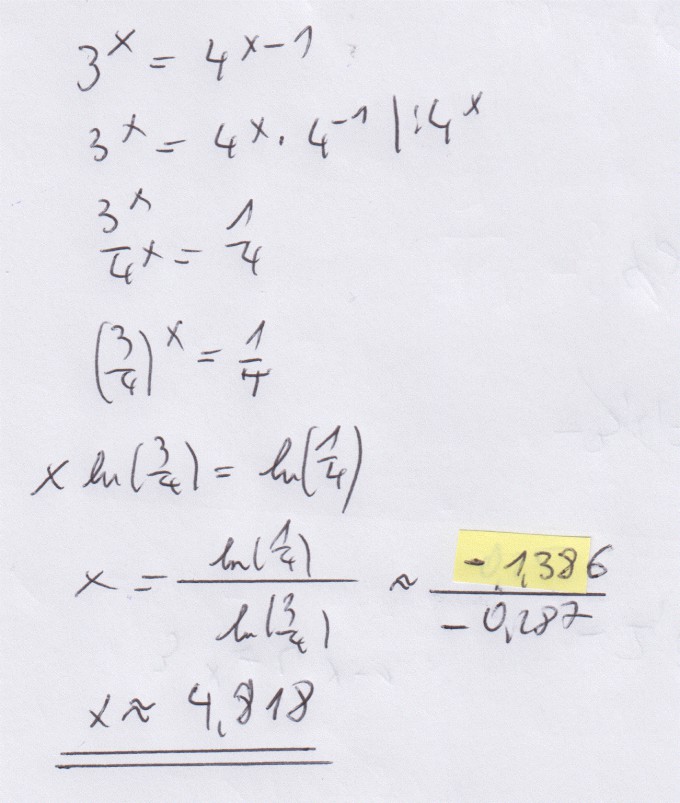 3^x = 4^(x-1)
3^x = 4^x · 4^(-1) | :4^x
3^x/4^x = 1/4
(3/4)^x = 1/4
x ln(3/4) = ln(1/4)
x = ln(1/4)/ln(3/4) ≈ -1,386/-0,287
x ≈ 4,818